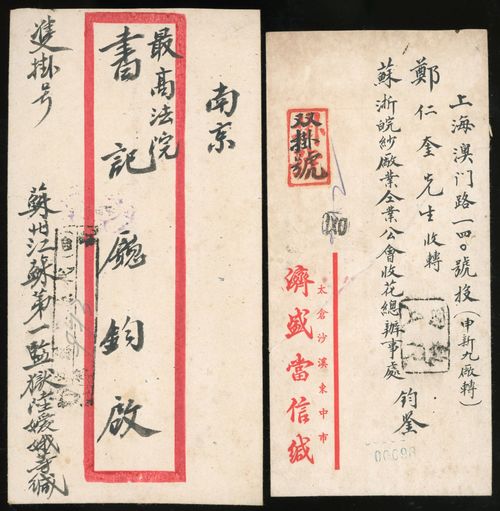 南京
最高法院
書記廳鈞啟
雙掛号
蘇州江蘇第一監獄陸媛媛等緘
上海澳门路一四〇號投(申新九廠轉)
鄭仁奎先生收轉
蘇浙皖紗廠業仝業公會收花總辦事處 鈞鑒
双掛號
太倉沙溪東中市
濟盛當信缄
00098